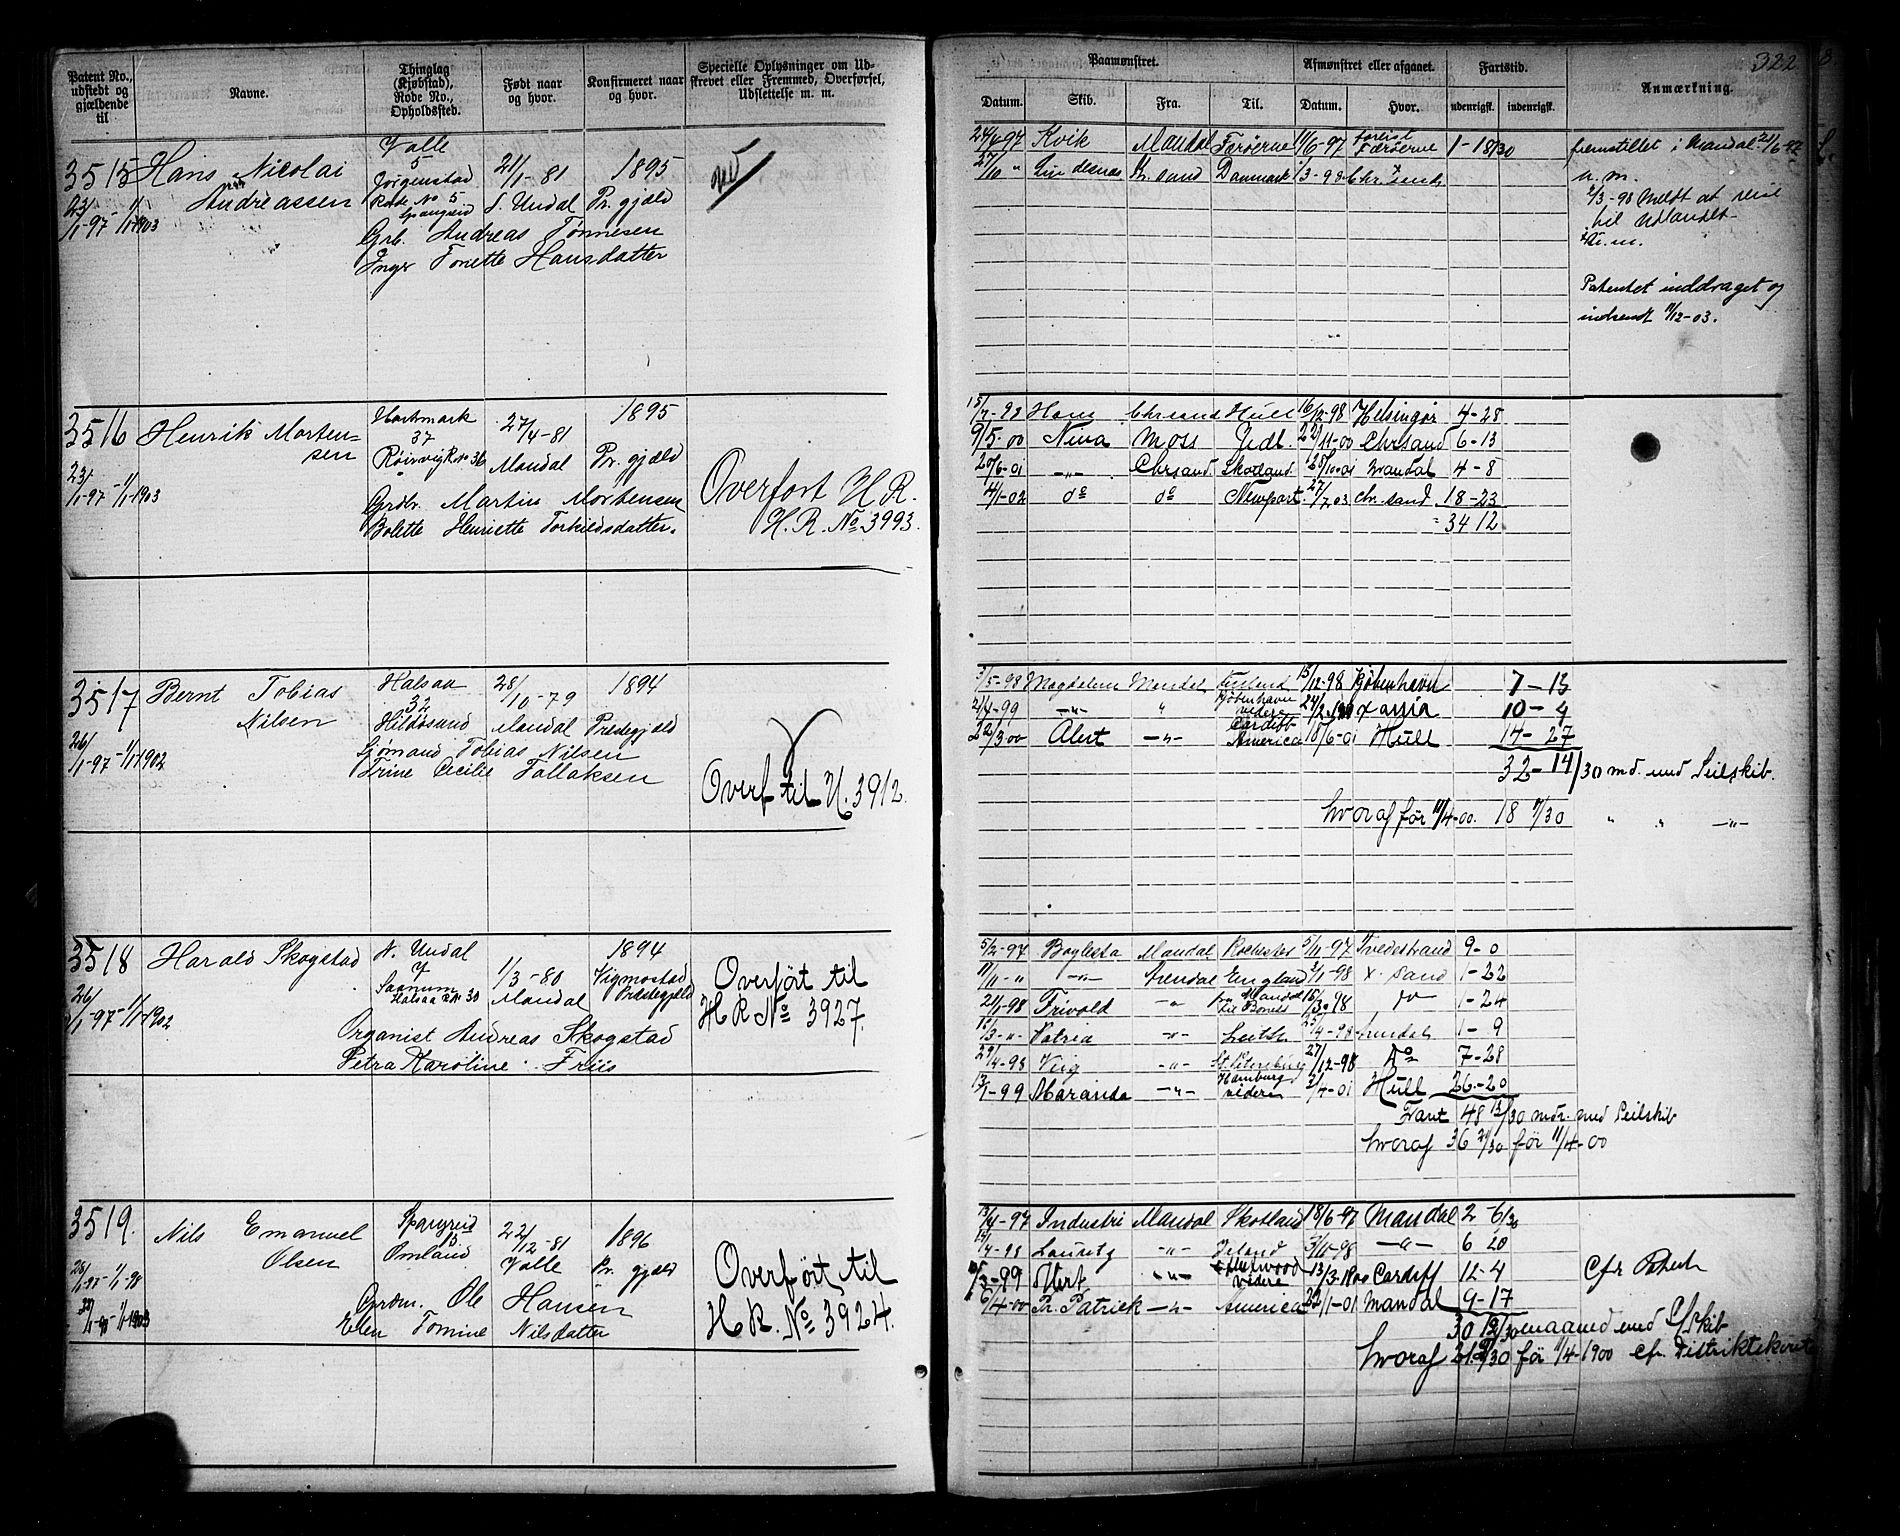 322
Patent No., udstedt og gjældende til
Navne.
Thinglag (Kjøbstad), Rode No., Opholdssted.
Født naar og hvor.
Konfirmeret naar og hvor.
Specielle Oplysninger om Udskrevet eller Fremmed, Overførsel, Udslettelse m. m.
Paamønstret.
Datum. Skib. Fra. Til.
Afmønstret eller afgaaet.
Datum. Hvor.
Fartstid.
udenrigsk. indenrigsk.
Anmærkning.
3515 Hans Nicolai Andreassen
23/1-97 - 1/1 1903
Valle
5
Jørgenstad
Rode No 5
Spangreid
21/1-81
S. Undal
1895
Pr. gjæld
Grb. Andreas Tønnesen
Inger Tonette Hansdatter
24/4-97 Kvik Mandal Færøerne 11/6-97 Færøerne 1-18/30
27/10 " Lindesnæs Kr. sand Danmark 1/3-98 Chr. sand
fremstillet i Mandal 21/6-97
2/3-98 Meldt at reise til Udlandet
Patentet inddraget og
indsendt 11/12-03.
3516 Henrik Mortensen
23/1-97 - 1/1 1903
Hartmark
37
Røinvig R. No 36
27/4-81
Mandal
1895
Pr. gjæld
Grdbr. Martin Mortensen
Bolette Henriette Torkildsdatter.
Overført H.R.
H. R. No 3993.
15/7-98 Hans Chrsand Hull 16/12-98 Helsingør 4-28
9/5-00 Nina Moss Jydl. 22/11-00 Chrsand 6-13
20/6-01 -"- Chrsand. Skotland. 28/10-01 Mandal 4-8
4/1-02 do do Newport 27/7 03 chr. sand 18-23
34 12
3517 Bernt Tobias Nilsen
26/1-97 - 1/1 1902
Halsaa
32
Hildøsund
28/10-79
Mandal
1894
Prestegjæld
Sjømand Tobias Nilsen
Trine Cecilie Tallaksen
Overf til H. 3912.
3/5-98 Magdalene Mandal 15/12-98 Kjøbenhavn 7-13
2/4-99 -"- " Kjøbenhavn videre 10-4
22/3 00 Alert -"- Cardiff America 18/6-01 Hull 14-27
32-14/30 md. med Seilskib.
hvoraf før 11/4-00. 18 11/30 " " -"-
3518 Harald Skogstad
26/1-97 - 1/1 1902
N. Undal
7
Saanum
Halsaa R No 30
1/3-80
Mandal
1894
Vigmostad
Prestegjæld
Organist Andreas Skogstad
Petra Karoline Friis
Overført til
H R No 3927.
5/2-97 Boylesta Mandal Rochester 5/11-97 Tvedestrand 9-0
11/11-" -"- Arendal England 3/1-98 X. sand 1-22
21/1-98 Trivold -"- 16/3-98 do 1-24
15/3-" Patria -"- Leith 25/4-98 Arendal 1-9
29/4-98 Viig -"- St. Petersburg 27/12-98 do 7-28
13/1-99 Maranda -"- Hamburg videre 3/4-01 Hull 26-20
Fart 48 13/30 mdr. med Seilskib
hvoraf 36 21/30 før 11/4-00
3519. Nils Emanuel Olsen
Spangreid
15
Omland
22/12-81
Valle
1896
Pr. gjæld
Grdm. Ole Hansen
Elen Tomine Nilsdatter
Overført til
H R. No 3924.
13/4-97 Industri Mandal Skotland 18/6-97 Mandal 2-6/30
12/4-98 Lauritz -"- Island 3/11-98 -"- 6 20
5/3-99 Alert -"- videre 13/3-1900 Cardiff 12-4
6/4-00 Pr. Patriek -"- America 22/1-01 Mandal 9-17
Cfr Patent
30 12/30 maaned med S/Skib
hvoraf 21 2/30 før 1/4-1900 Cfr. Distriktskort